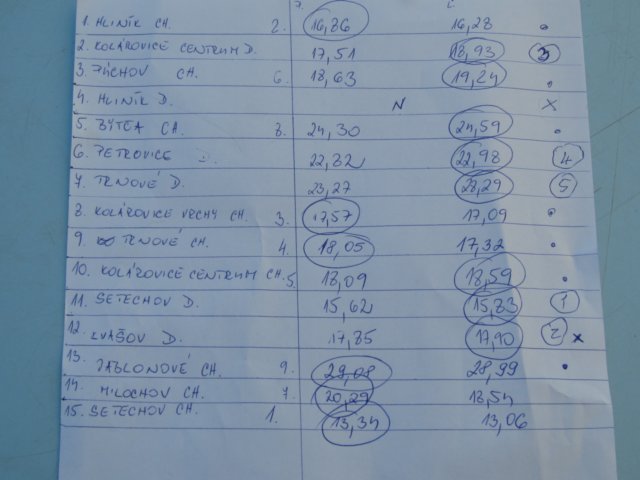 1. HLINÍK CH. 2. 16,86 16,28
2. KOLÁROVICE CENTRUM D. 17,51 18,93 3
3. PÚCHOV CH. 6. 18,63 19,24
4. HLINÍK D. N X
5. BYTČA CH. 8. 24,30 24,59
6. PETROVICE 22,82 22,98 4
7. TRNOVÉ D. 23,27 28,29 5
8. KOLÁROVICE VRCHY CH. 3. 17,57 17,09
9. TRNOVÉ CH. 4. 18,05 17,32
10. KOLÁROVICE CENTRUM CH. 5. 18,09 18,59
11. SETECHOV D. 15,62 15,83 1
12. KVAŠOV D. 17,85 17,90 2 x
13. JABLONOVÉ CH. 9. 29,08 28,99
14. MILOCHOV CH. 7. 20,29 18,54
15. SETECHOV CH. 1. 13,34 13,06